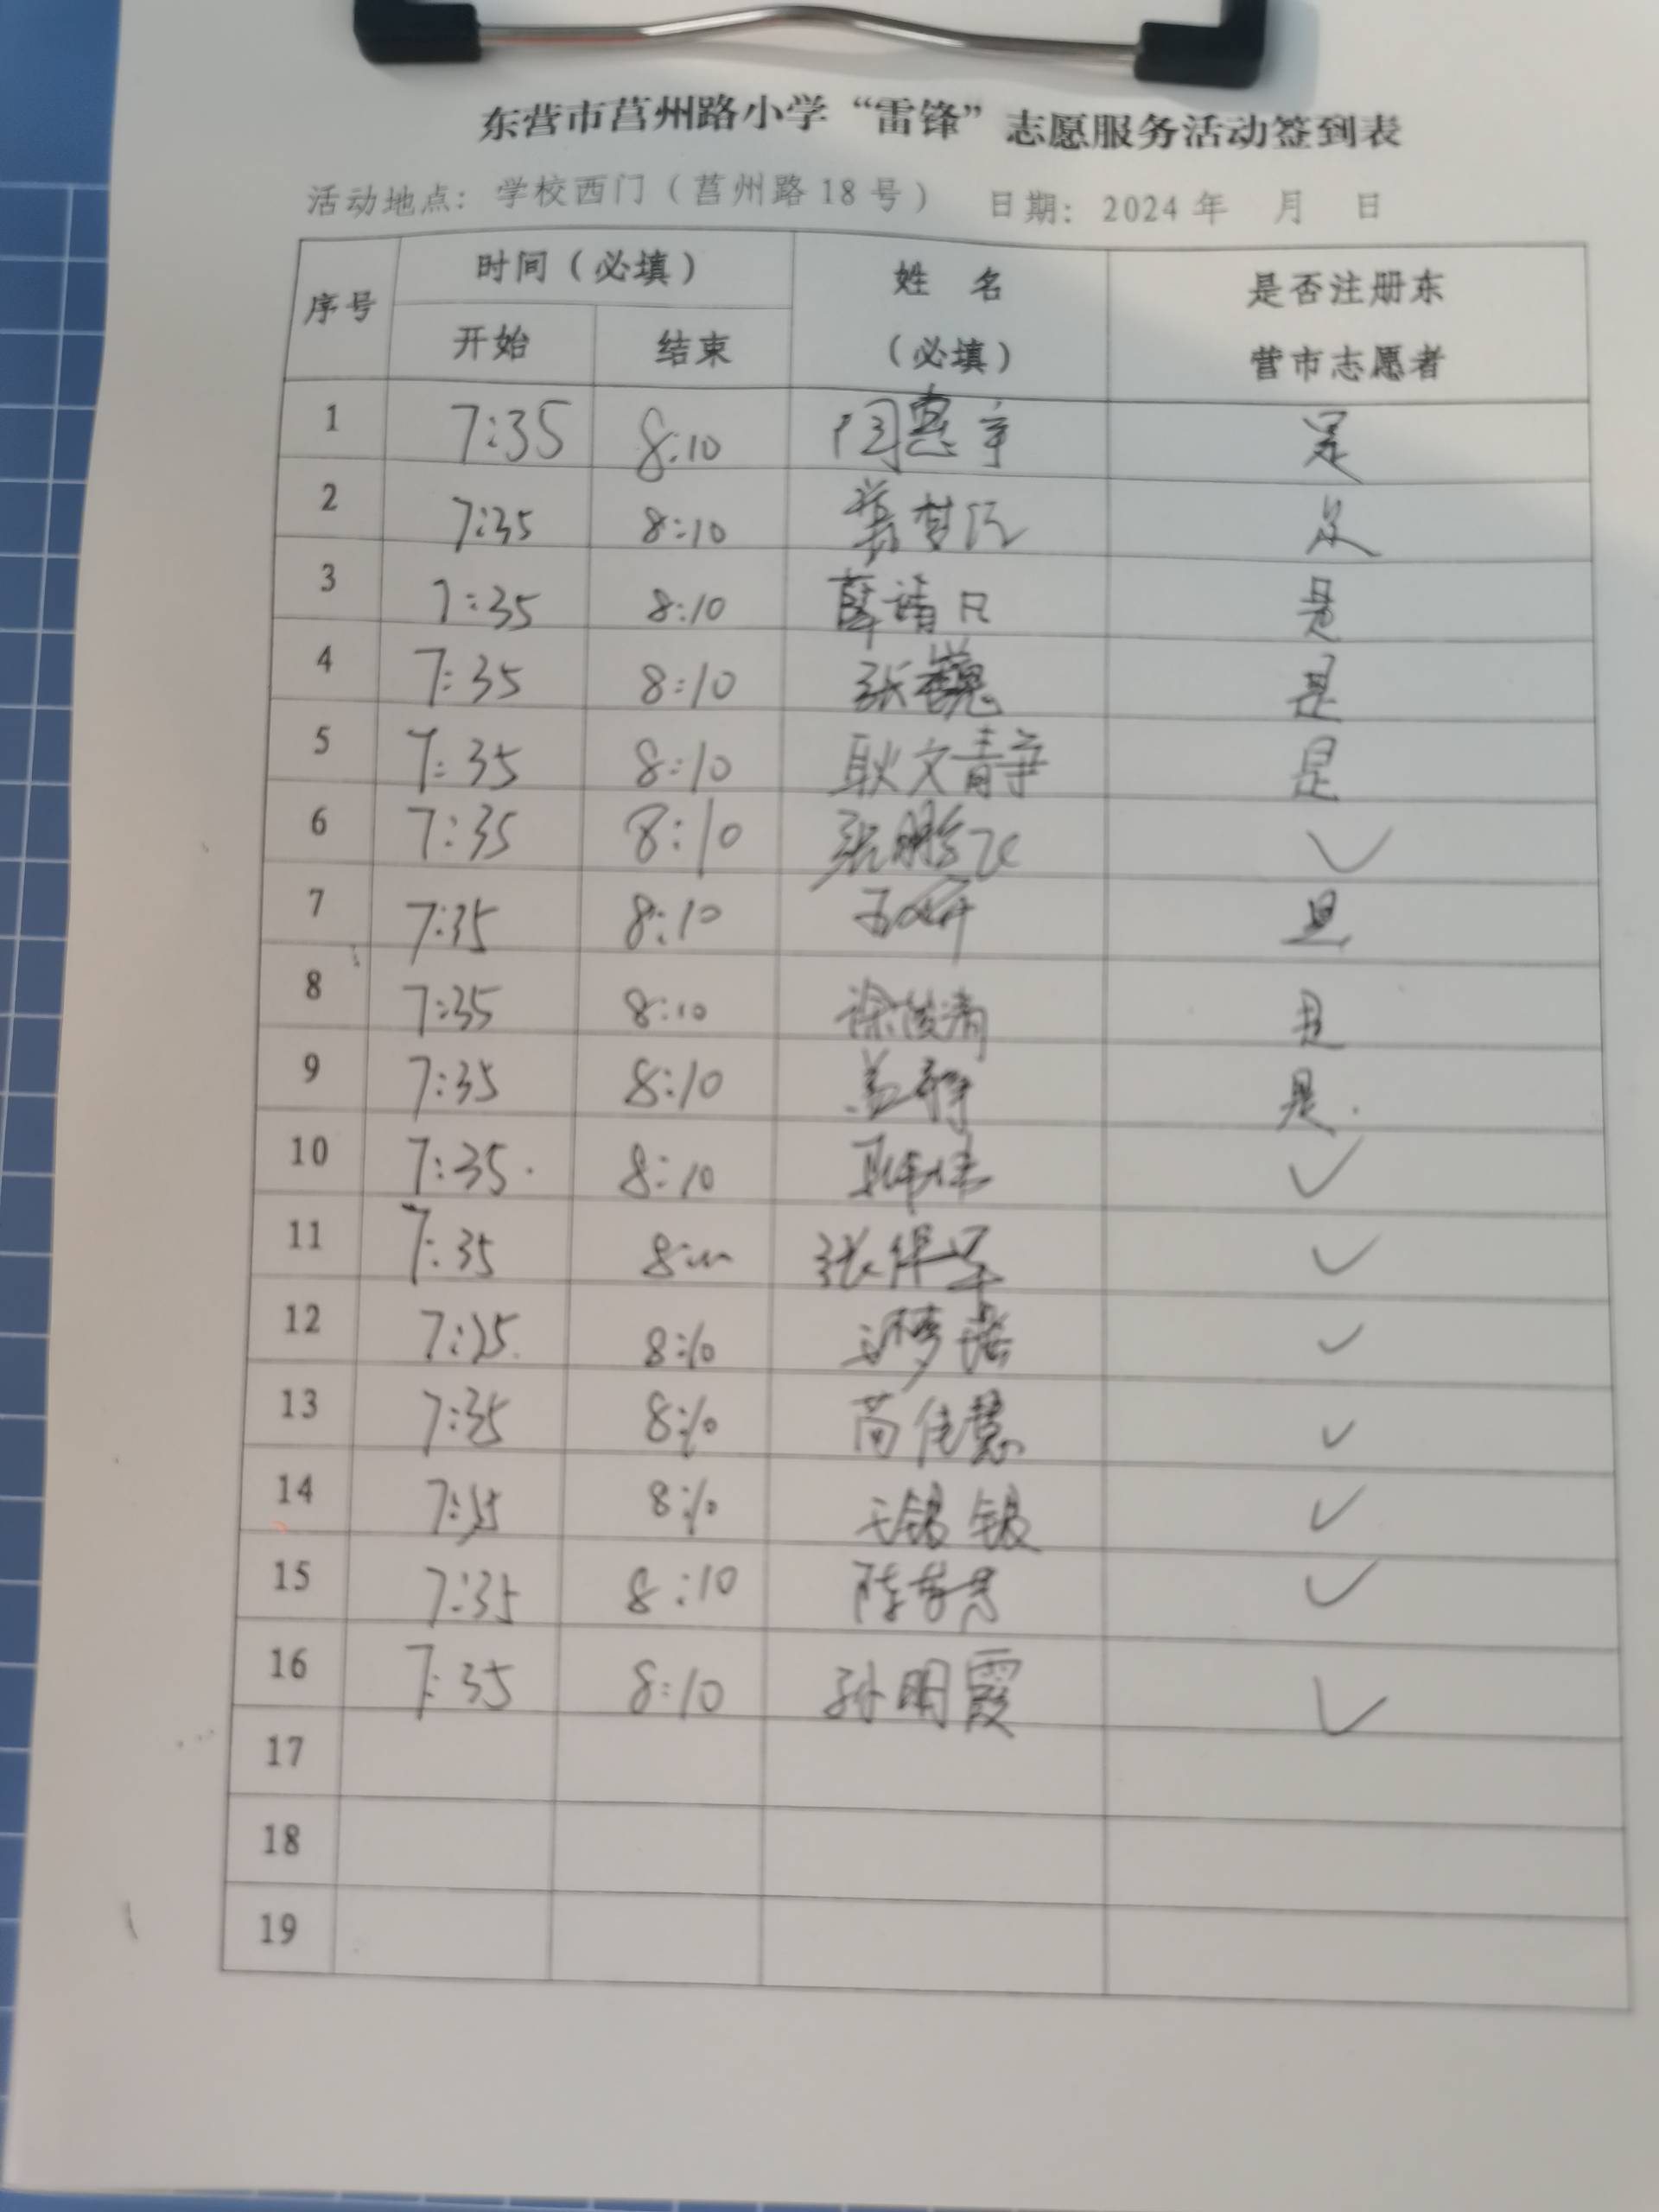 东营市莒州路小学“雷锋”志愿服务活动签到表
活动地点：学校西门（莒州路18号） 日期：2024年 月 日
序号 时间（必填） 姓 名 是否注册东
开始 结束 （必填） 营市志愿者
1 7:35 8:10 是
2 7:35 8:10 是
3 7:35 8:10 薛靖 是
4 7:35 8:10 张巍 是
5 7:35 8:10 耿文静 是
6 7:35 8:10 张鹏飞 ✓
7 7:35 8:10 是
8 7:35 8:10 徐俊清 是
9 7:35 8:10 盖 是
10 7:35 8:10 耿 ✓
11 7:35 8:10 张 ✓
12 7:35 8:10 ✓
13 7:35 8:10 苟佳慧 ✓
14 7:35 8:10 ✓
15 7:35 8:10 陈 ✓
16 7:35 8:10 孙明霞 ✓
17
18
19